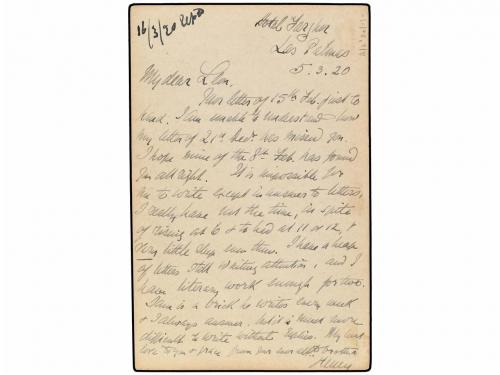 16/3/20
Hotel
Las Palmas
5.3.20
My dear
Your letter of 15th Feb. just to
hand. I am unable to understand how
my letter of 21st has missed you.
I hope mine of the 8th Feb. has found
you all right. It is impossible for
me to write except in answer to letters,
I really have not the time, in spite
of rising at 6 & to bed at 11 or 12, &
very little sleep even then. I have a heap
of letters still waiting attention, and I
have literary work enough for two.
is a brick he writes every week
& I always answer, but it is much more
difficult to write without replies. My
love to you & from your
Henry